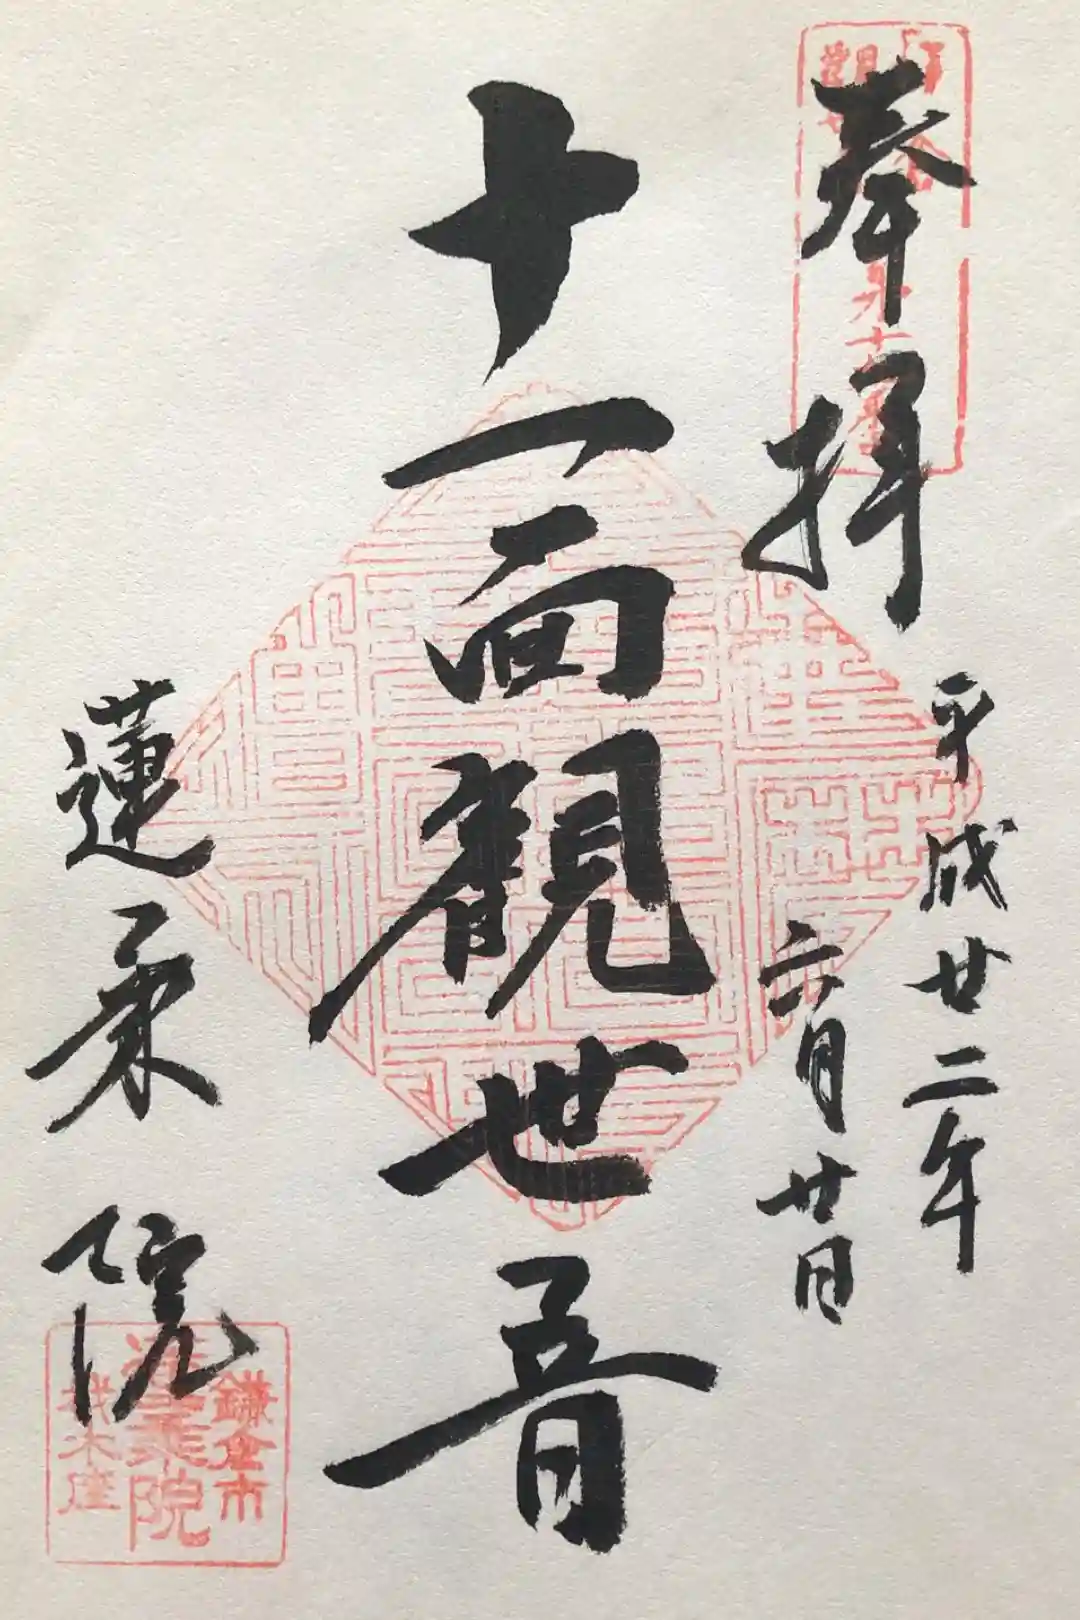 奉拝
平成廿二年
六月廿日
十一面観世音
蓮乗院
鎌倉市
蓮乗院
材木座